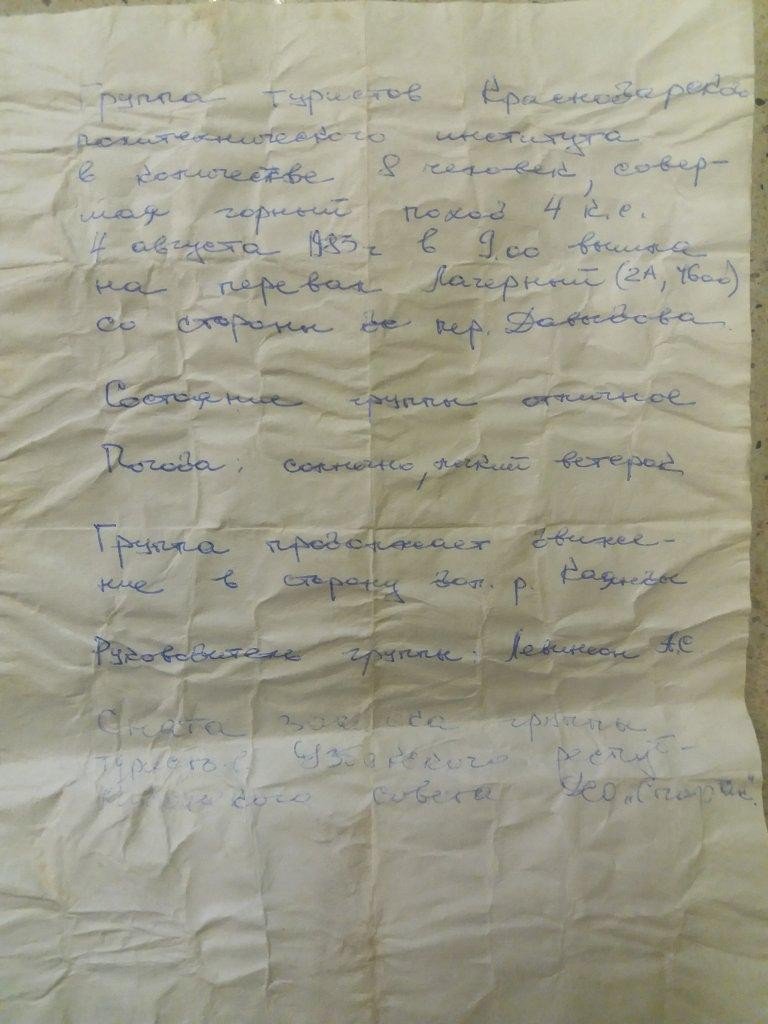 Группа туристов Краснодарского
политехнического института
в количестве 8 человек, совер-
шая горный поход 4 к.с.
4 августа 1985г в 9.00 вышла
на перевал Лагерный (2А, 4600)
со стороны пер. Давыдова.
Состояние группы отличное
Погода: солнечно, легкий ветерок
Группа продолжает движе-
ние в сторону р. Каинды
Руководитель группы: Левинсон АС
Снята записка группы
туристов Узбекского респуб-
ликанского совета ДСО „Спартак".